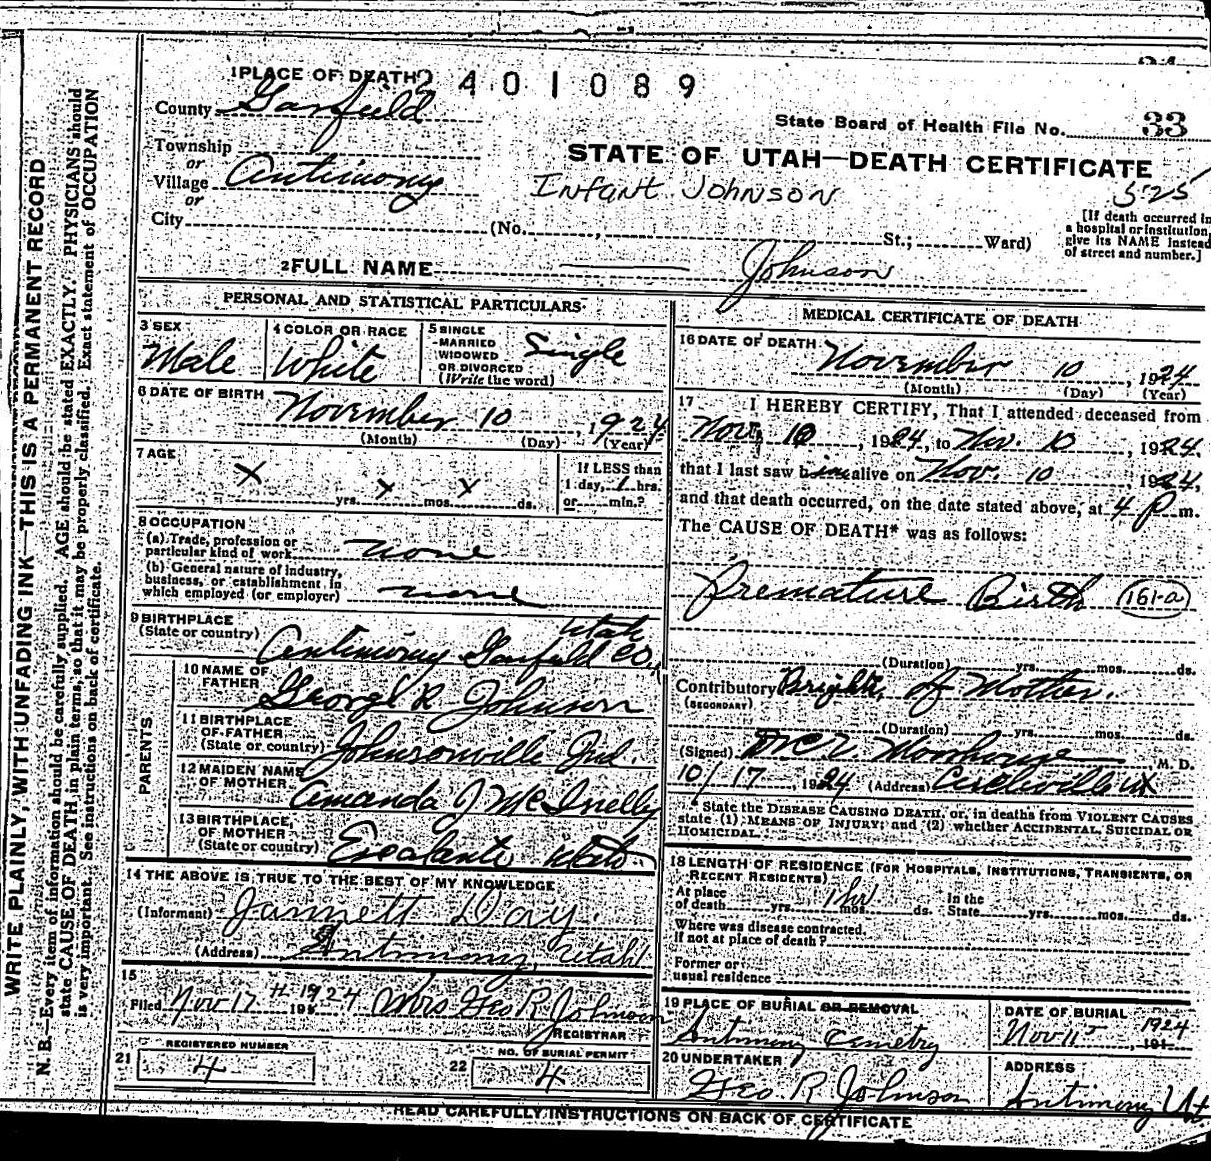 WRITE PLAINLY, WITH UNFADING INK—THIS IS A PERMANENT RECORD
N. B.—Every item of information should be carefully supplied. AGE should be stated EXACTLY. PHYSICIANS should
state CAUSE OF DEATH in plain terms, so that it may be properly classified. Exact statement of OCCUPATION
is very important. See instructions on back of certificate.
1 PLACE OF DEATH
2401089
County Garfield
State Board of Health File No. 33
Township
or
Village Antimony
or
City
STATE OF UTAH—DEATH CERTIFICATE
INFANT JOHNSON
525
(No. , St.; Ward)
[If death occurred in
a hospital or institution,
give its NAME instead
of street and number.]
2 FULL NAME Johnson
PERSONAL AND STATISTICAL PARTICULARS
3 SEX
Male
4 COLOR OR RACE
White
5 SINGLE
MARRIED
WIDOWED
OR DIVORCED
(Write the word)
Single
6 DATE OF BIRTH
November 10, 1924
(Month) (Day) (Year)
7 AGE
X yrs. X mos. X ds.
If LESS than
1 day, 1 hrs.
or min.?
8 OCCUPATION
(a) Trade, profession or
particular kind of work none
(b) General nature of industry,
business, or establishment in
which employed (or employer) none
9 BIRTHPLACE
(State or country)
Antimony Garfield Co. Utah
PARENTS
10 NAME OF
FATHER
George R Johnson
11 BIRTHPLACE
OF FATHER
(State or country) Johnsonville Ind.
12 MAIDEN NAME
OF MOTHER Amanda J McInelly
13 BIRTHPLACE
OF MOTHER
(State or country) Escalante Utah
14 THE ABOVE IS TRUE TO THE BEST OF MY KNOWLEDGE
(Informant) Jannett Davy.
(Address) Antimony, Utah
15
Filed Nov 17th 1924 Mrs Geo R Johnson
REGISTRAR
21 REGISTERED NUMBER
4
22 NO. OF BURIAL PERMIT
4
MEDICAL CERTIFICATE OF DEATH
16 DATE OF DEATH
November 10, 1924
(Month) (Day) (Year)
17 I HEREBY CERTIFY, That I attended deceased from
Nov. 10, 1924, to Nov. 10, 1924,
that I last saw him alive on Nov. 10, 1924,
and that death occurred, on the date stated above, at 4 P m.
The CAUSE OF DEATH* was as follows:
Premature Birth 161-a
(Duration) yrs. mos. ds.
Contributory Brights of Mother.
(SECONDARY)
(Duration) yrs. mos. ds.
(Signed) Moorhouse, M. D.
10/17, 1924 (Address) Circleville Ut
State the DISEASE CAUSING DEATH, or, in deaths from VIOLENT CAUSES
state (1) MEANS OF INJURY; and (2) whether ACCIDENTAL, SUICIDAL OR
HOMICIDAL.
18 LENGTH OF RESIDENCE (FOR HOSPITALS, INSTITUTIONS, TRANSIENTS, OR
RECENT RESIDENTS)
At place
of death yrs. 1 hr mos. ds. In the
State yrs. mos. ds.
Where was disease contracted,
if not at place of death?
Former or
usual residence
19 PLACE OF BURIAL OR REMOVAL
Antimony Cemetry
DATE OF BURIAL
Nov 11, 1924
20 UNDERTAKER
Geo R Johnson
ADDRESS
Antimony Ut.
READ CAREFULLY INSTRUCTIONS ON BACK OF CERTIFICATE